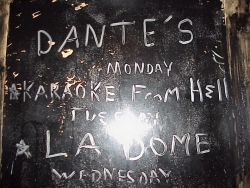 DANTE'S
MONDAY
☆KARAOKE From HELL
TUESDAY
☆LA DOME
WEDNESDAY